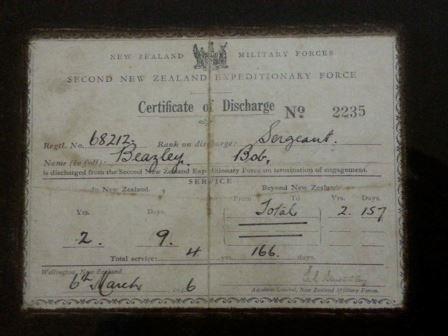 NEW ZEALAND MILITARY FORCES
SECOND NEW ZEALAND EXPEDITIONARY FORCE
Certificate of Discharge No 2235
Regtl. No. 68212 Rank on discharge: Sergeant.
Name (in full): Beazley, Bob,
is discharged from the Second New Zealand Expeditionary Force on termination of engagement.
SERVICE
In New Zealand. Beyond New Zealand.
From To Yrs. Days.
Yrs. Days. Total 2. 157
2. 9.
Total service: 4 yrs. 166. days.
Wellington, New Zealand
6th March 6
Adjutant-General, New Zealand Military Forces.